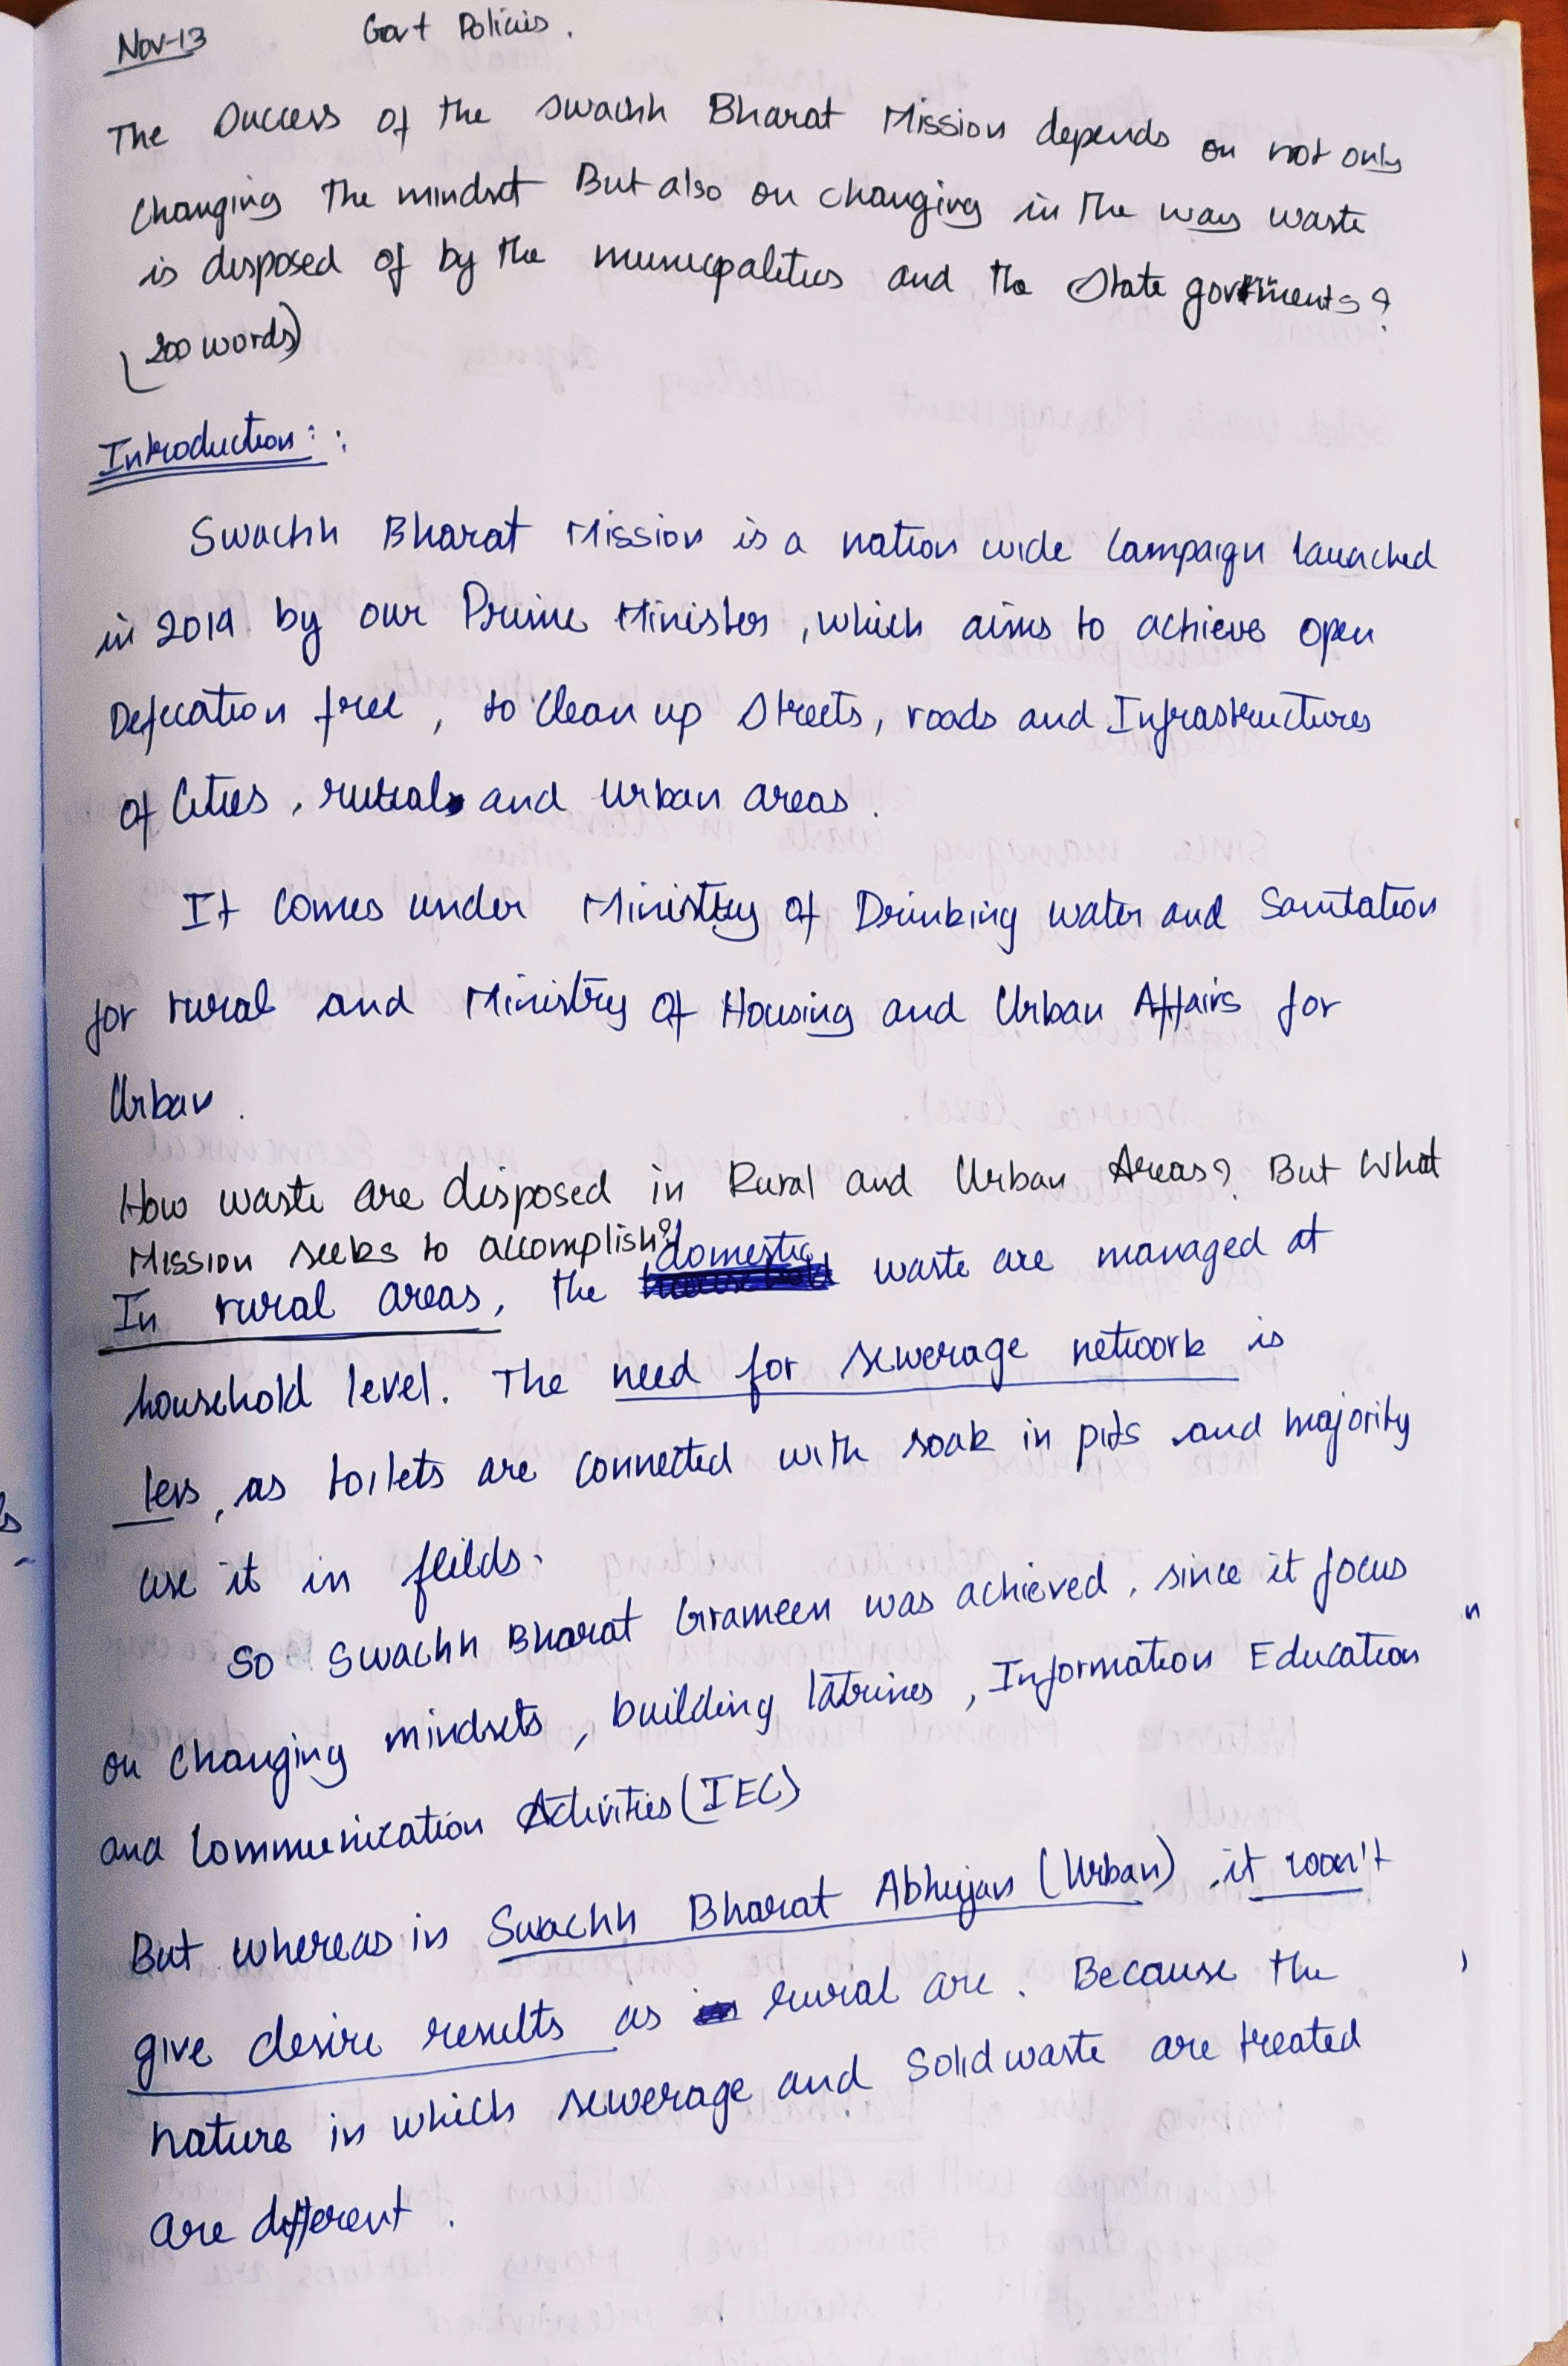 Nov-13 Govt Policies.
The Success of the Swachh Bharat Mission depends on not only
Changing the mindset But also on changing in the way waste
is disposed of by the municpalities and the State goverments?
(200 words)
Introduction:
Swachh Bharat Mission is a nation wide Campaign launched
in 2019 by our Prime Minister, which aims to achieve open
Defecation free, to clean up Streets, roads and Infrastructures
of Cities, rural and urban areas.
It comes under Ministry of Drinking water and Sanitation
for rural and Ministry of Housing and Urban Affairs for
Urban.
How waste are disposed in Rural and Urban Areas? But What
Mission seeks to accomplish?
In rural areas, the domestic waste are managed at
household level. The need for sewerage network is
less, as toilets are connected with soak in pits and majority
use it in feilds.
So Swachh Bharat Grameen was achieved, since it focus
on changing mindsets, building latrines, Information Education
and Communication Activities (IEC)
But whereas in Swachh Bharat Abhiyan (Urban), it won't
give desire results as rural are. Because the
nature in which sewerage and Solid waste are treated
are different.